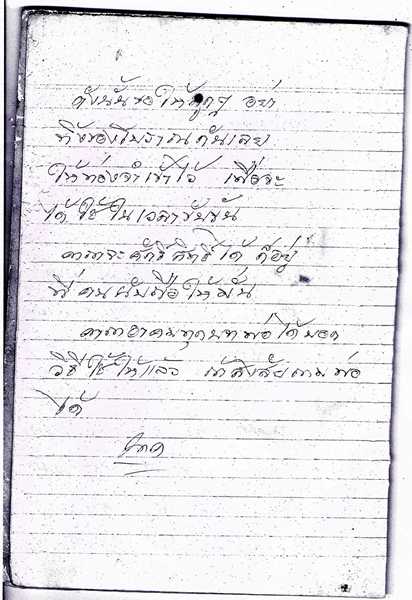 ดังนั้นขอให้ลูกๆ อย่า
ทิ้งของโบราณกันเลย
ให้ท่องจำเข้าไว้ เพื่อจะ
ได้ใช้ในเวลาขับขัน
คาถาจะศักดิ์สิทธิ์ได้ ก็อยู่
ที่คนนับถือให้มั่น
คาถาอาคมทุกบทพ่อได้บอก
วิธีใช้ให้แล้ว ถ้าสงสัยถามพ่อ
ได้